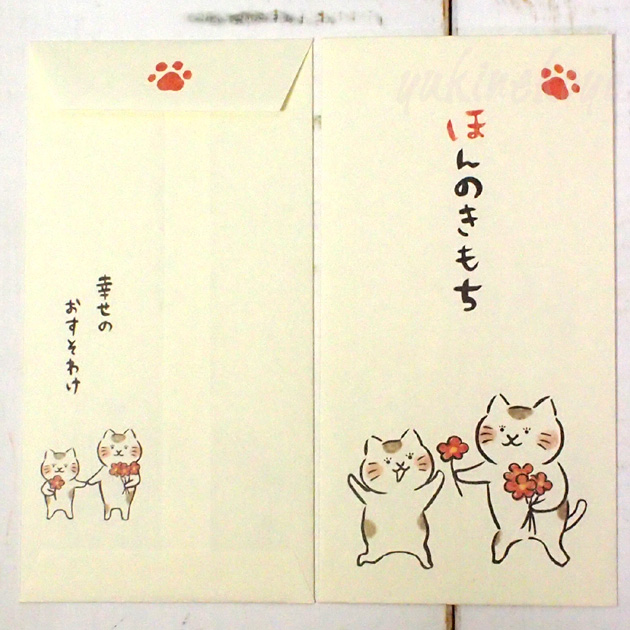 ほんのきもち
幸せの
おすそわけ
yukineko